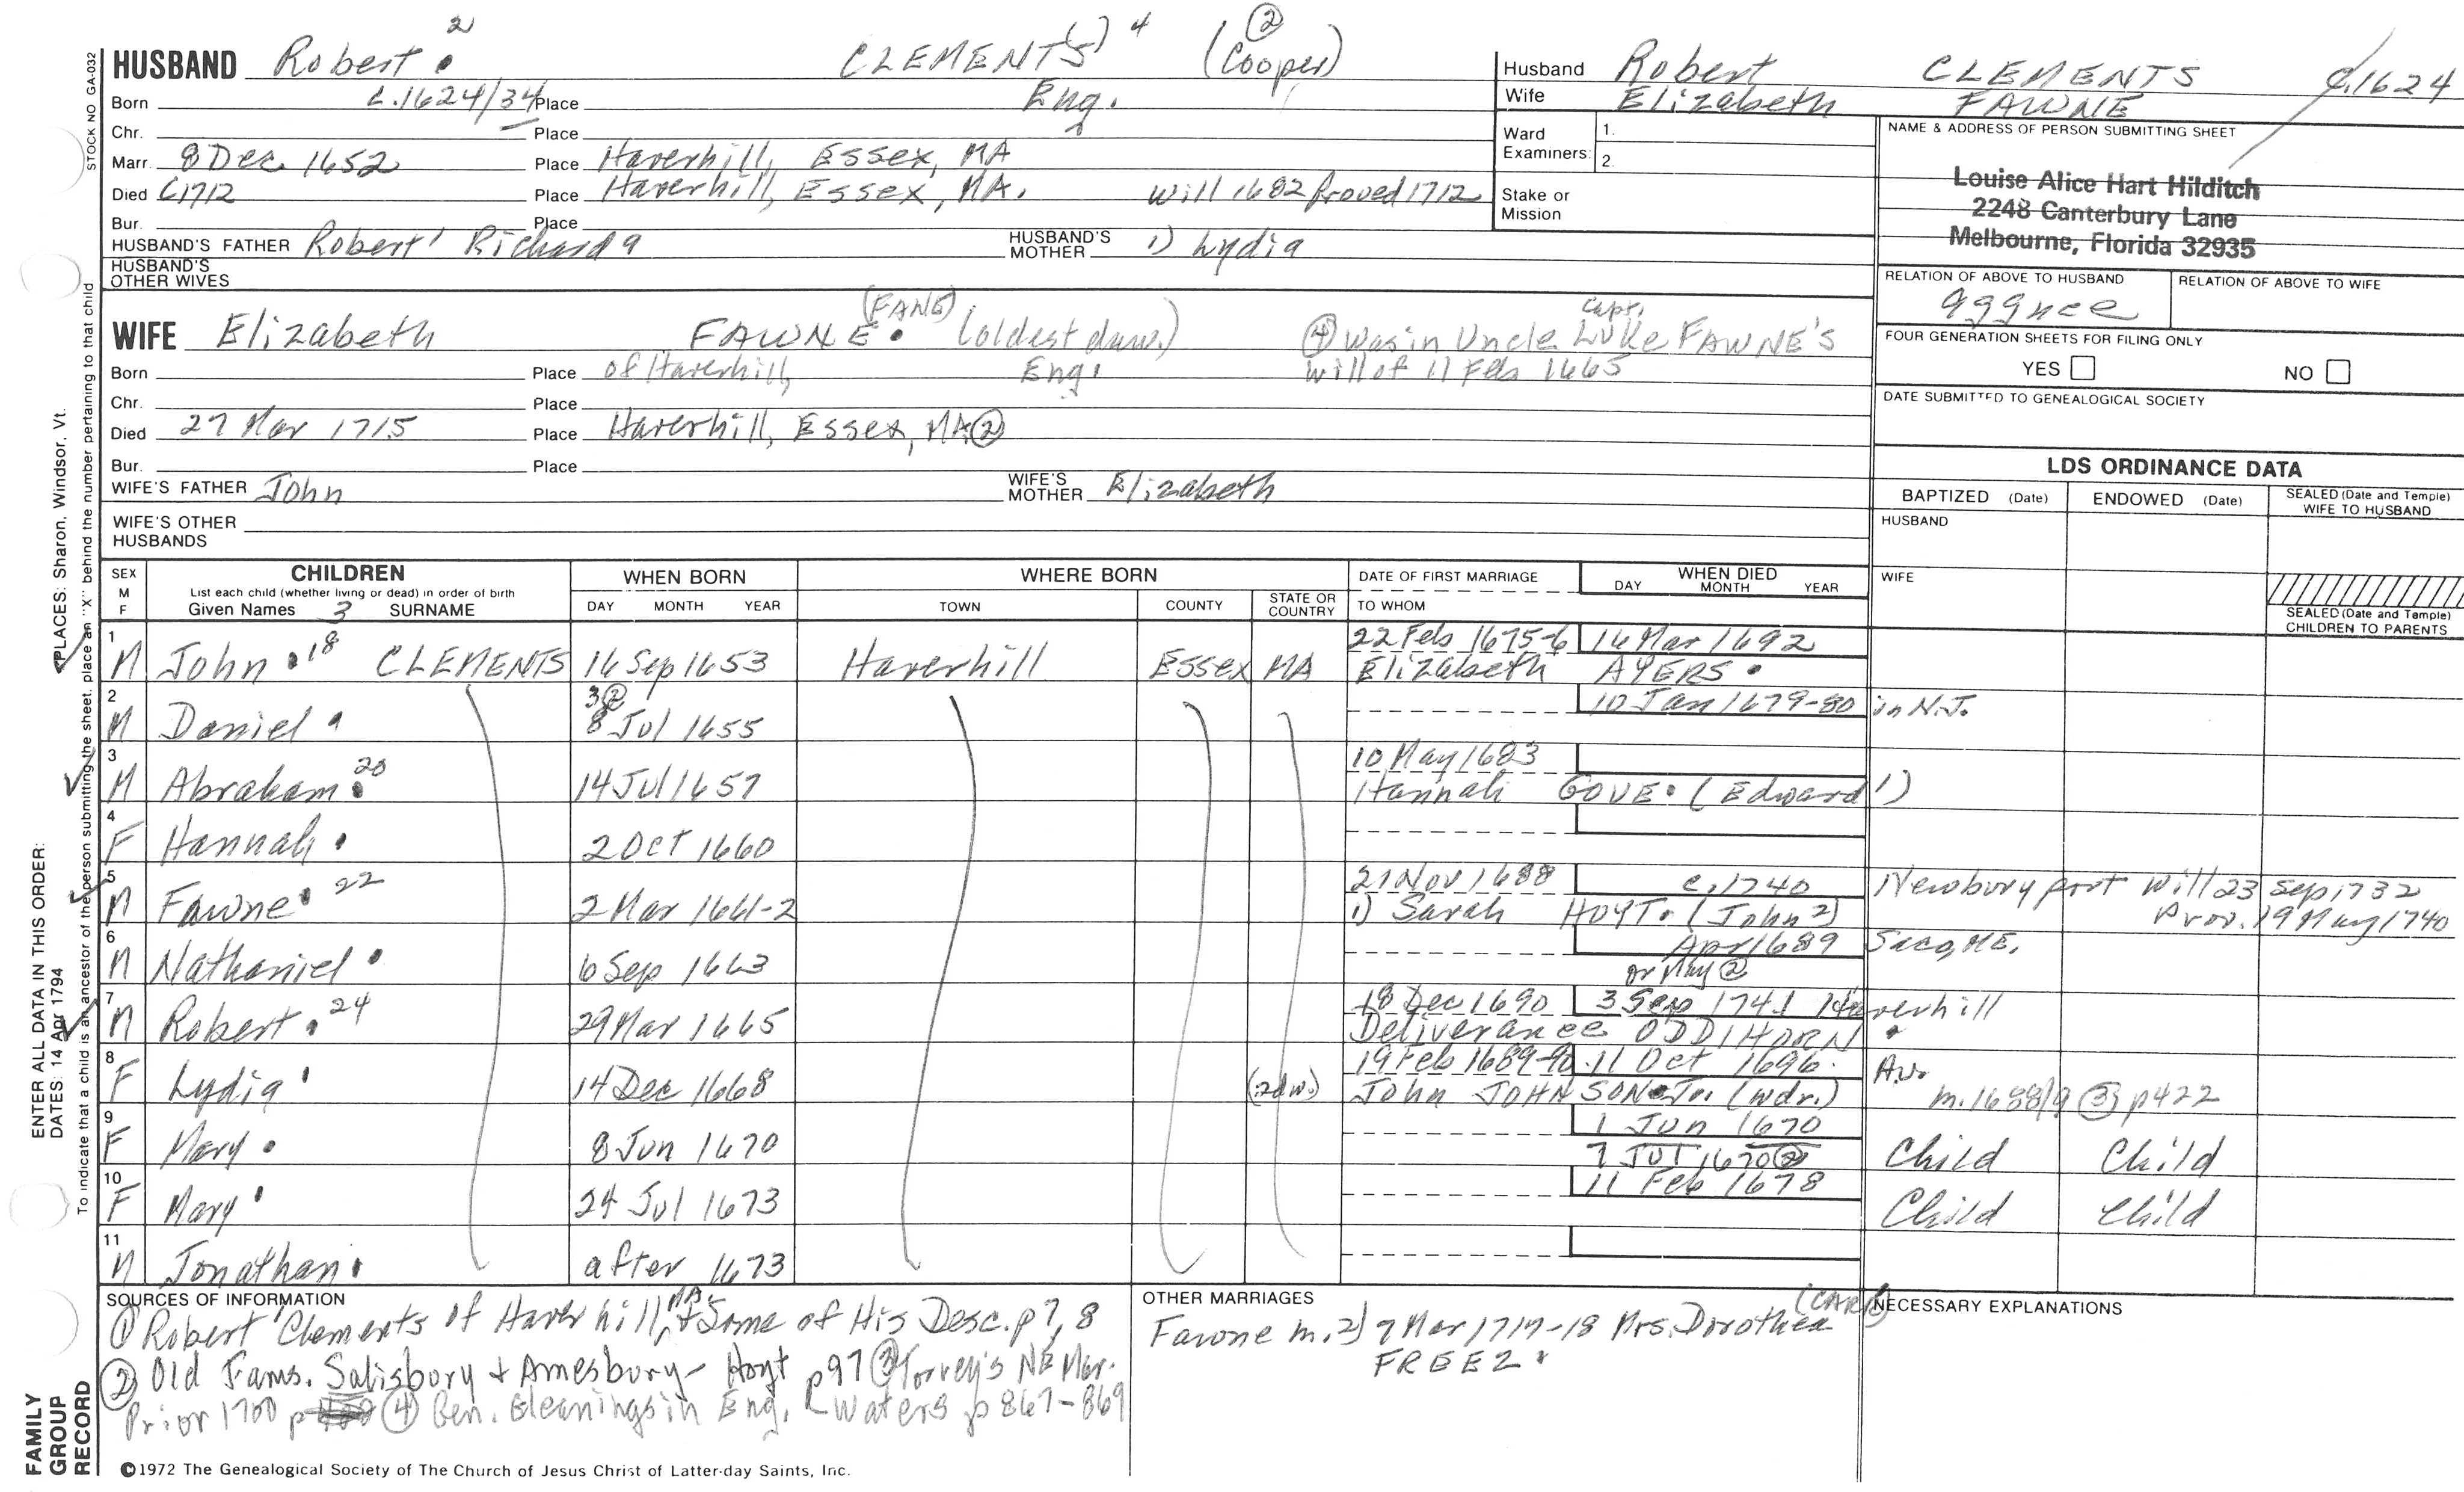 HUSBAND Robert 2 CLEMENT(S) 4 (Cooper) ②
Born c.1624/34 Place Eng.
Chr. Place
Marr. 8 Dec 1652 Place Haverhill, Essex, MA
Died c1712 Place Haverhill, Essex, MA. Will 1682 Proved 1712
Bur. Place
HUSBAND'S FATHER Robert 1 Richard 9 HUSBAND'S MOTHER 1) Lydia
HUSBAND'S OTHER WIVES
WIFE Elizabeth FAWNE (FANE) (oldest daw.) ④ was in Uncle Capt. Luke FAWNE'S
Born Place of Haverhill, Eng. Will of 11 Feb 1665
Chr. Place
Died 27 Mar 1715 Place Haverhill, Essex, MA ②
Bur. Place
WIFE'S FATHER John WIFE'S MOTHER Elizabeth
WIFE'S OTHER HUSBANDS
Husband Robert CLEMENTS c.1624
Wife Elizabeth FAWNE
Ward Examiners: 1.
2.
Stake or Mission
NAME & ADDRESS OF PERSON SUBMITTING SHEET
Louise Alice Hart Hilditch
2248 Canterbury Lane
Melbourne, Florida 32935
RELATION OF ABOVE TO HUSBAND RELATION OF ABOVE TO WIFE
FOUR GENERATION SHEETS FOR FILING ONLY
YES NO
DATE SUBMITTED TO GENEALOGICAL SOCIETY
LDS ORDINANCE DATA
BAPTIZED (Date) ENDOWED (Date) SEALED (Date and Temple) WIFE TO HUSBAND
HUSBAND
WIFE
SEALED (Date and Temple) CHILDREN TO PARENTS
SEX M F CHILDREN List each child (whether living or dead) in order of birth Given Names 3 SURNAME
WHEN BORN DAY MONTH YEAR
WHERE BORN TOWN COUNTY STATE OR COUNTRY
DATE OF FIRST MARRIAGE TO WHOM
WHEN DIED DAY MONTH YEAR
1 M John 18 CLEMENTS 16 Sep 1653 Haverhill Essex MA 22 Feb 1675-6 16 Mar 1692
Elizabeth AYERS
2 M Daniel 8 Jul 1655 3② 10 Jan 1679-80 in N.J.
3 M Abraham 20 14 Jul 1657 10 May 1683
Hannah GOVE (Edward 1)
4 F Hannah 2 Oct 1660
5 M Fawne 22 2 Mar 1661-2 21 Nov 1688 c.1740 Newburyport Will 23 Sep 1732
1) Sarah HOYT (John 2) Prov. 19 May 1740
6 M Nathaniel 6 Sep 1663 Apr 1689 Saco, ME.
or May ②
7 M Robert 24 29 Mar 1665 18 Dec 1690 3 Sep 1741 Haverhill
Deliverance ODDIHORN
8 F Lydia 14 Dec 1668 19 Feb 1689-90 11 Oct 1696
(2d w.) John JOHNSON Jr. (wdr.) m. 1688/9 ③ p422
9 F Mary 8 Jun 1670 1 Jun 1670
7 Jul 1670 ② Child Child
10 F Mary 24 Jul 1673 11 Feb 1678
Child Child
11 M Jonathan after 1673
SOURCES OF INFORMATION
① Robert 1 Clements of Haverhill, MA. & Some of His Desc. p7, 8
② Old Fams. Salisbury & Amesbury - Hoyt p97 ③ Torrey's NE Mar.
Prior 1700 p ④ Gen. Gleanings in Eng. Waters p867-869
OTHER MARRIAGES
Fawne m. 2) 7 Mar 1717-18 Mrs. Dorothea
FREEZ
NECESSARY EXPLANATIONS
©1972 The Genealogical Society of The Church of Jesus Christ of Latter-day Saints, Inc.
STOCK NO GA-032
ENTER ALL DATA IN THIS ORDER:
PLACES: Sharon, Windsor, Vt.
DATES: 14 Apr 1794
To indicate that a child is an ancestor of the person submitting the sheet, place an "X" behind the number pertaining to that child
FAMILY
GROUP
RECORD